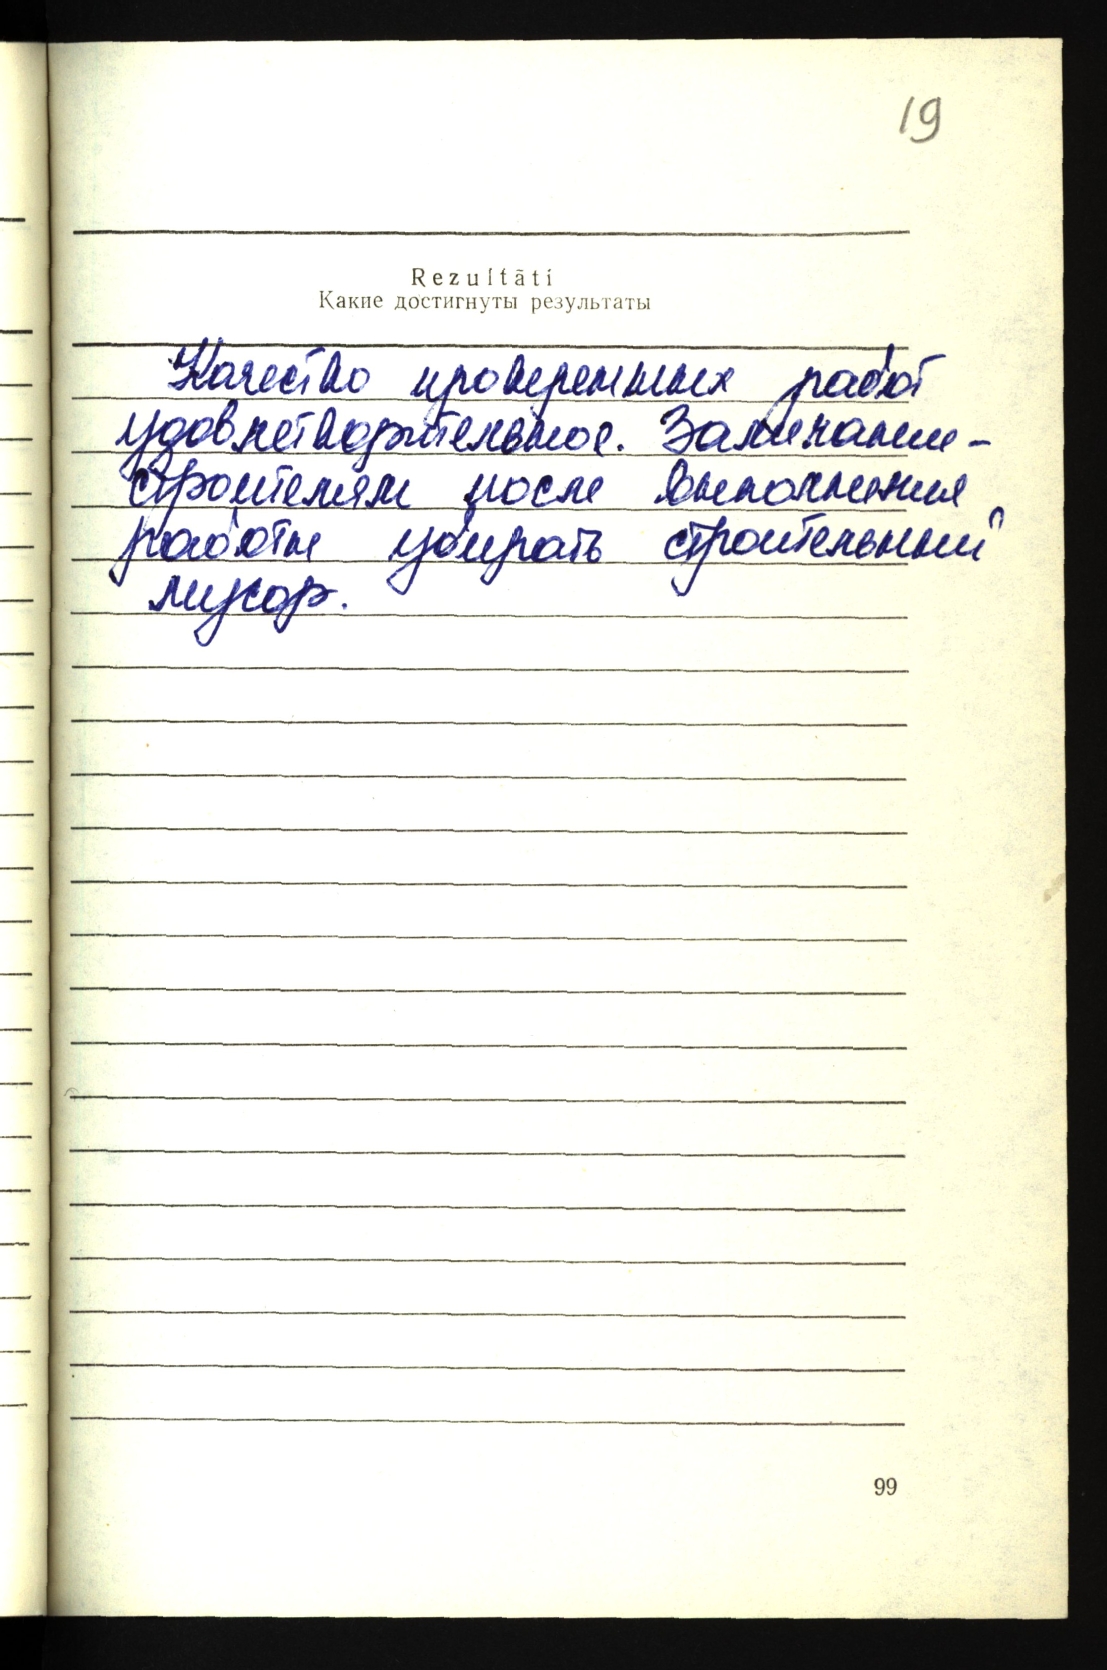 19
Rezultāti
Какие достигнуты результаты
Качество проверенных работ
удовлетворительное. Замечание –
строителям после выполнения
работы убирать строительный
мусор.
99